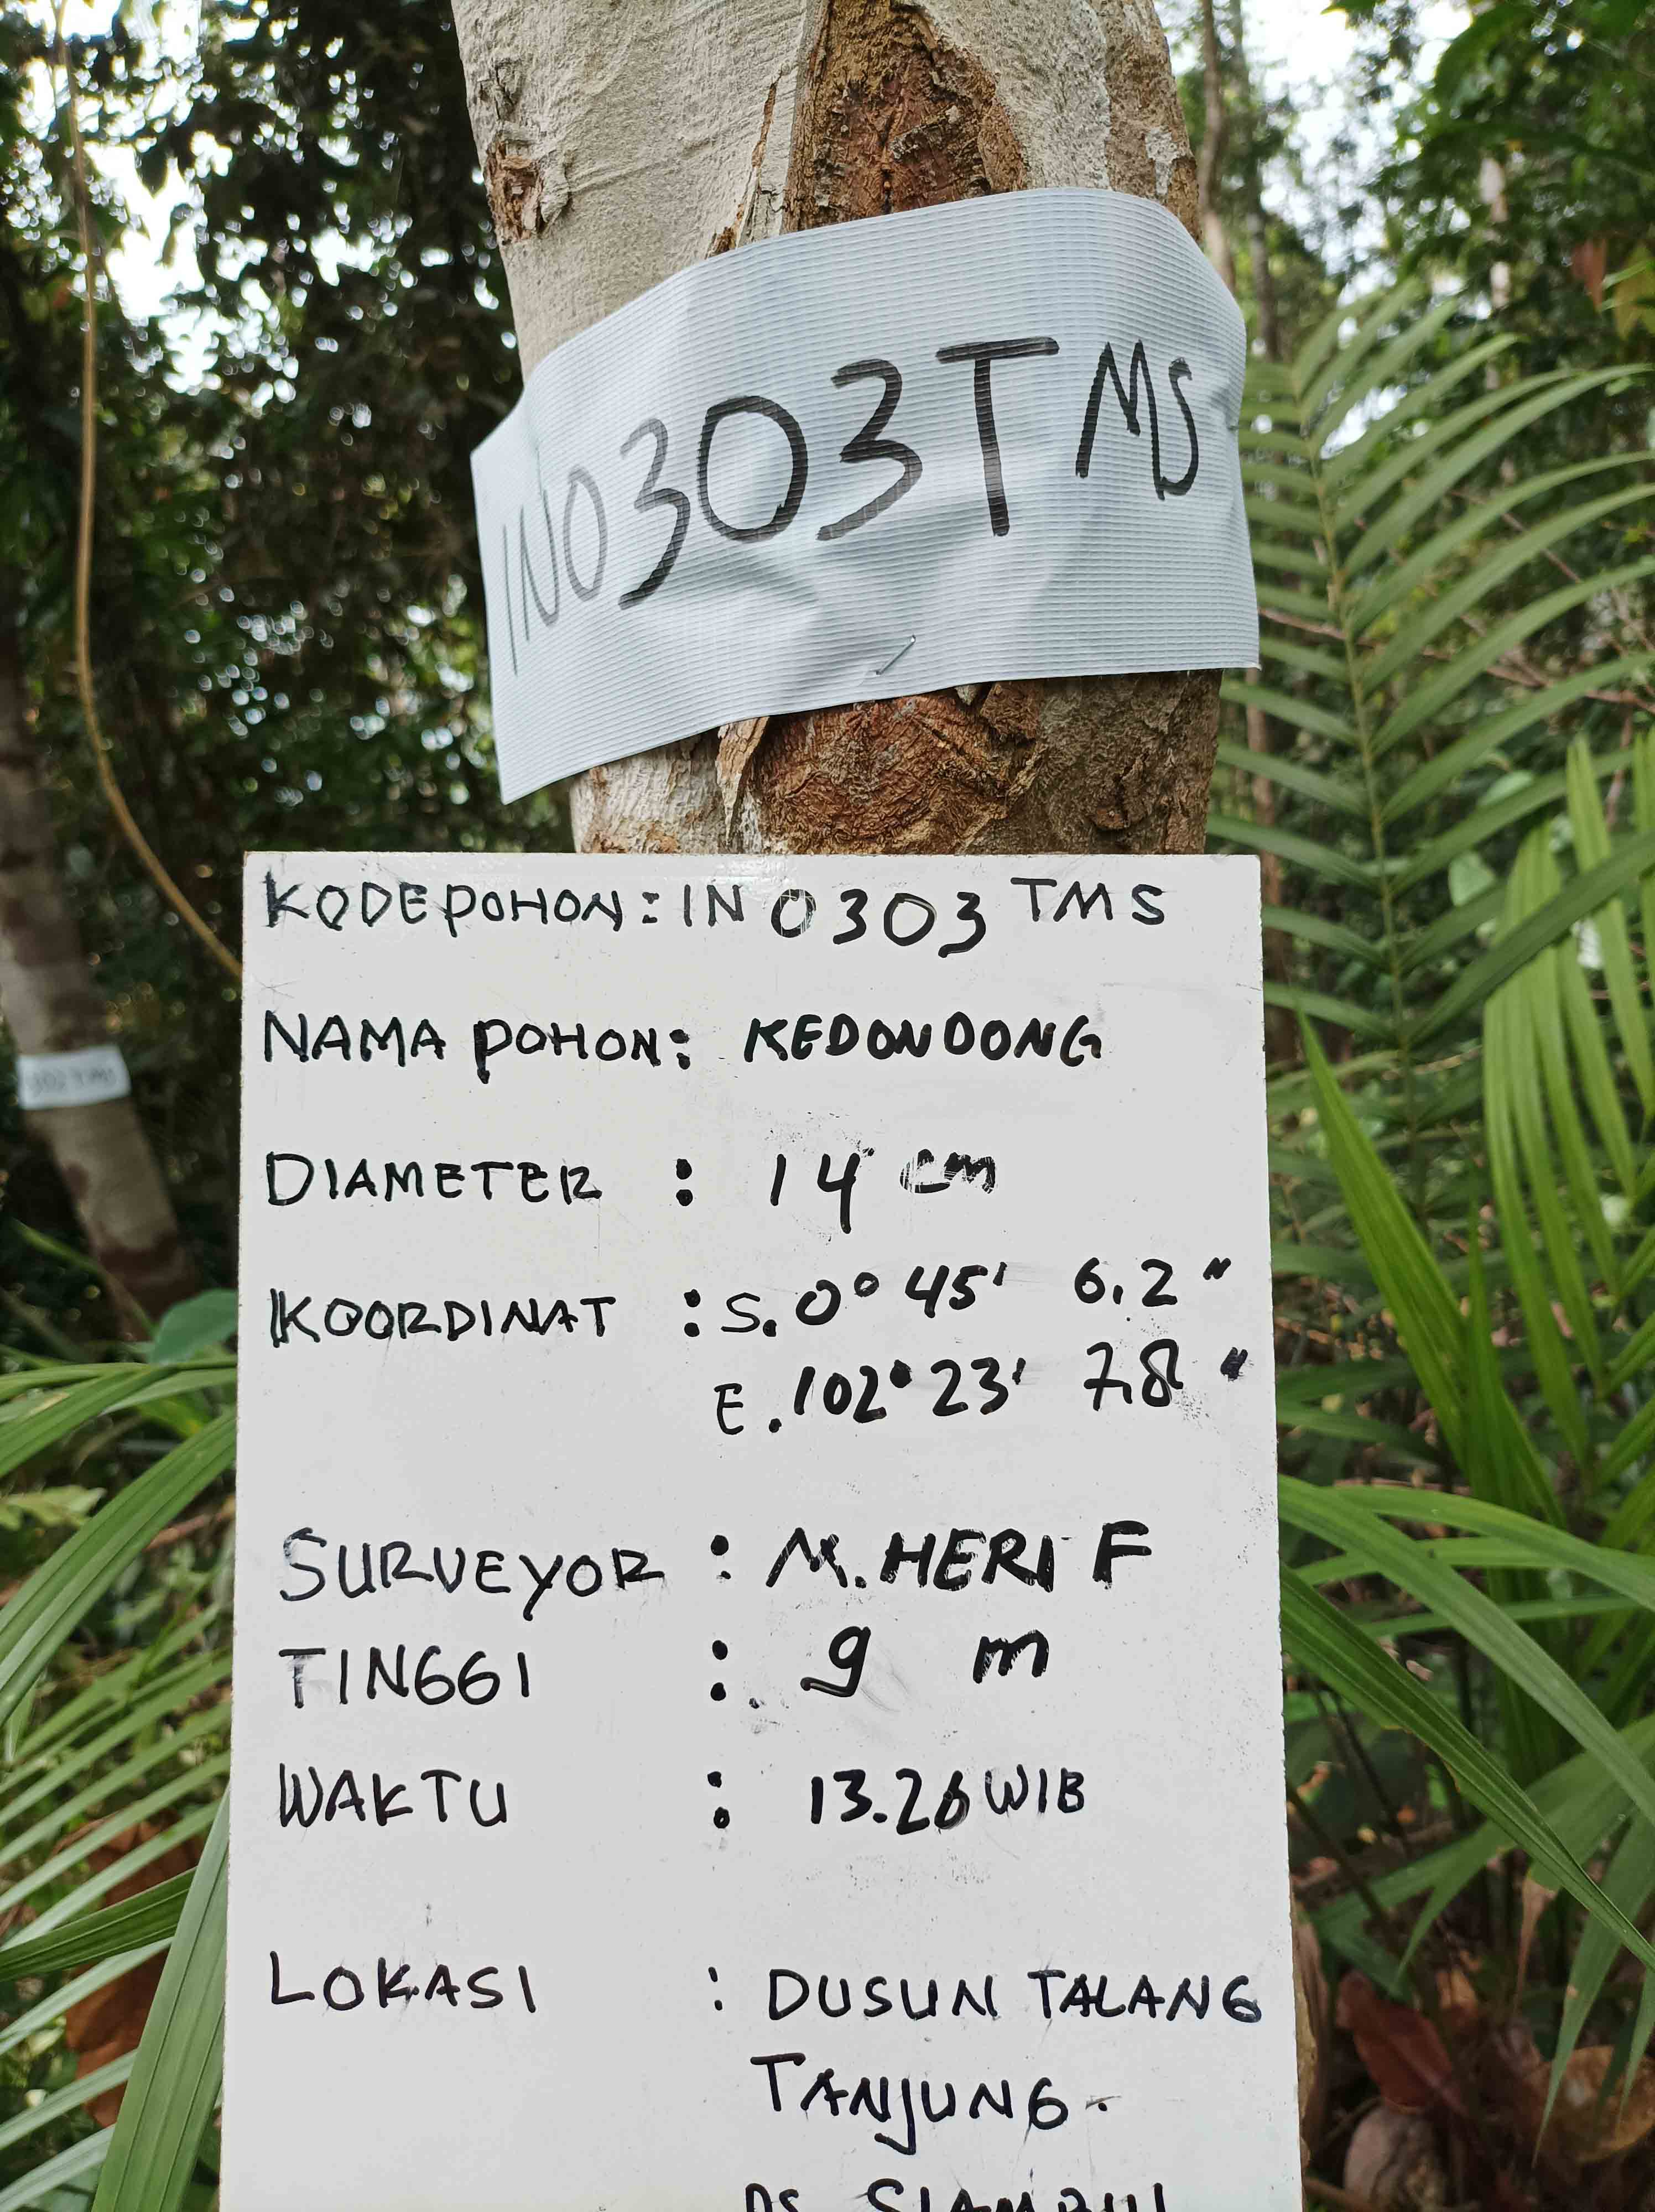 IN0303TMS
KODE POHON : IN 0303 TMS
NAMA POHON : KEDONDONG
DIAMETER : 14 cm
KOORDINAT : S. 0° 45' 6.2"
E. 102° 23' 7.8"
SURVEYOR : M. HERI F
TINGGI : 9 m
WAKTU : 13.26 WIB
LOKASI : DUSUN TALANG
TANJUNG.
DS